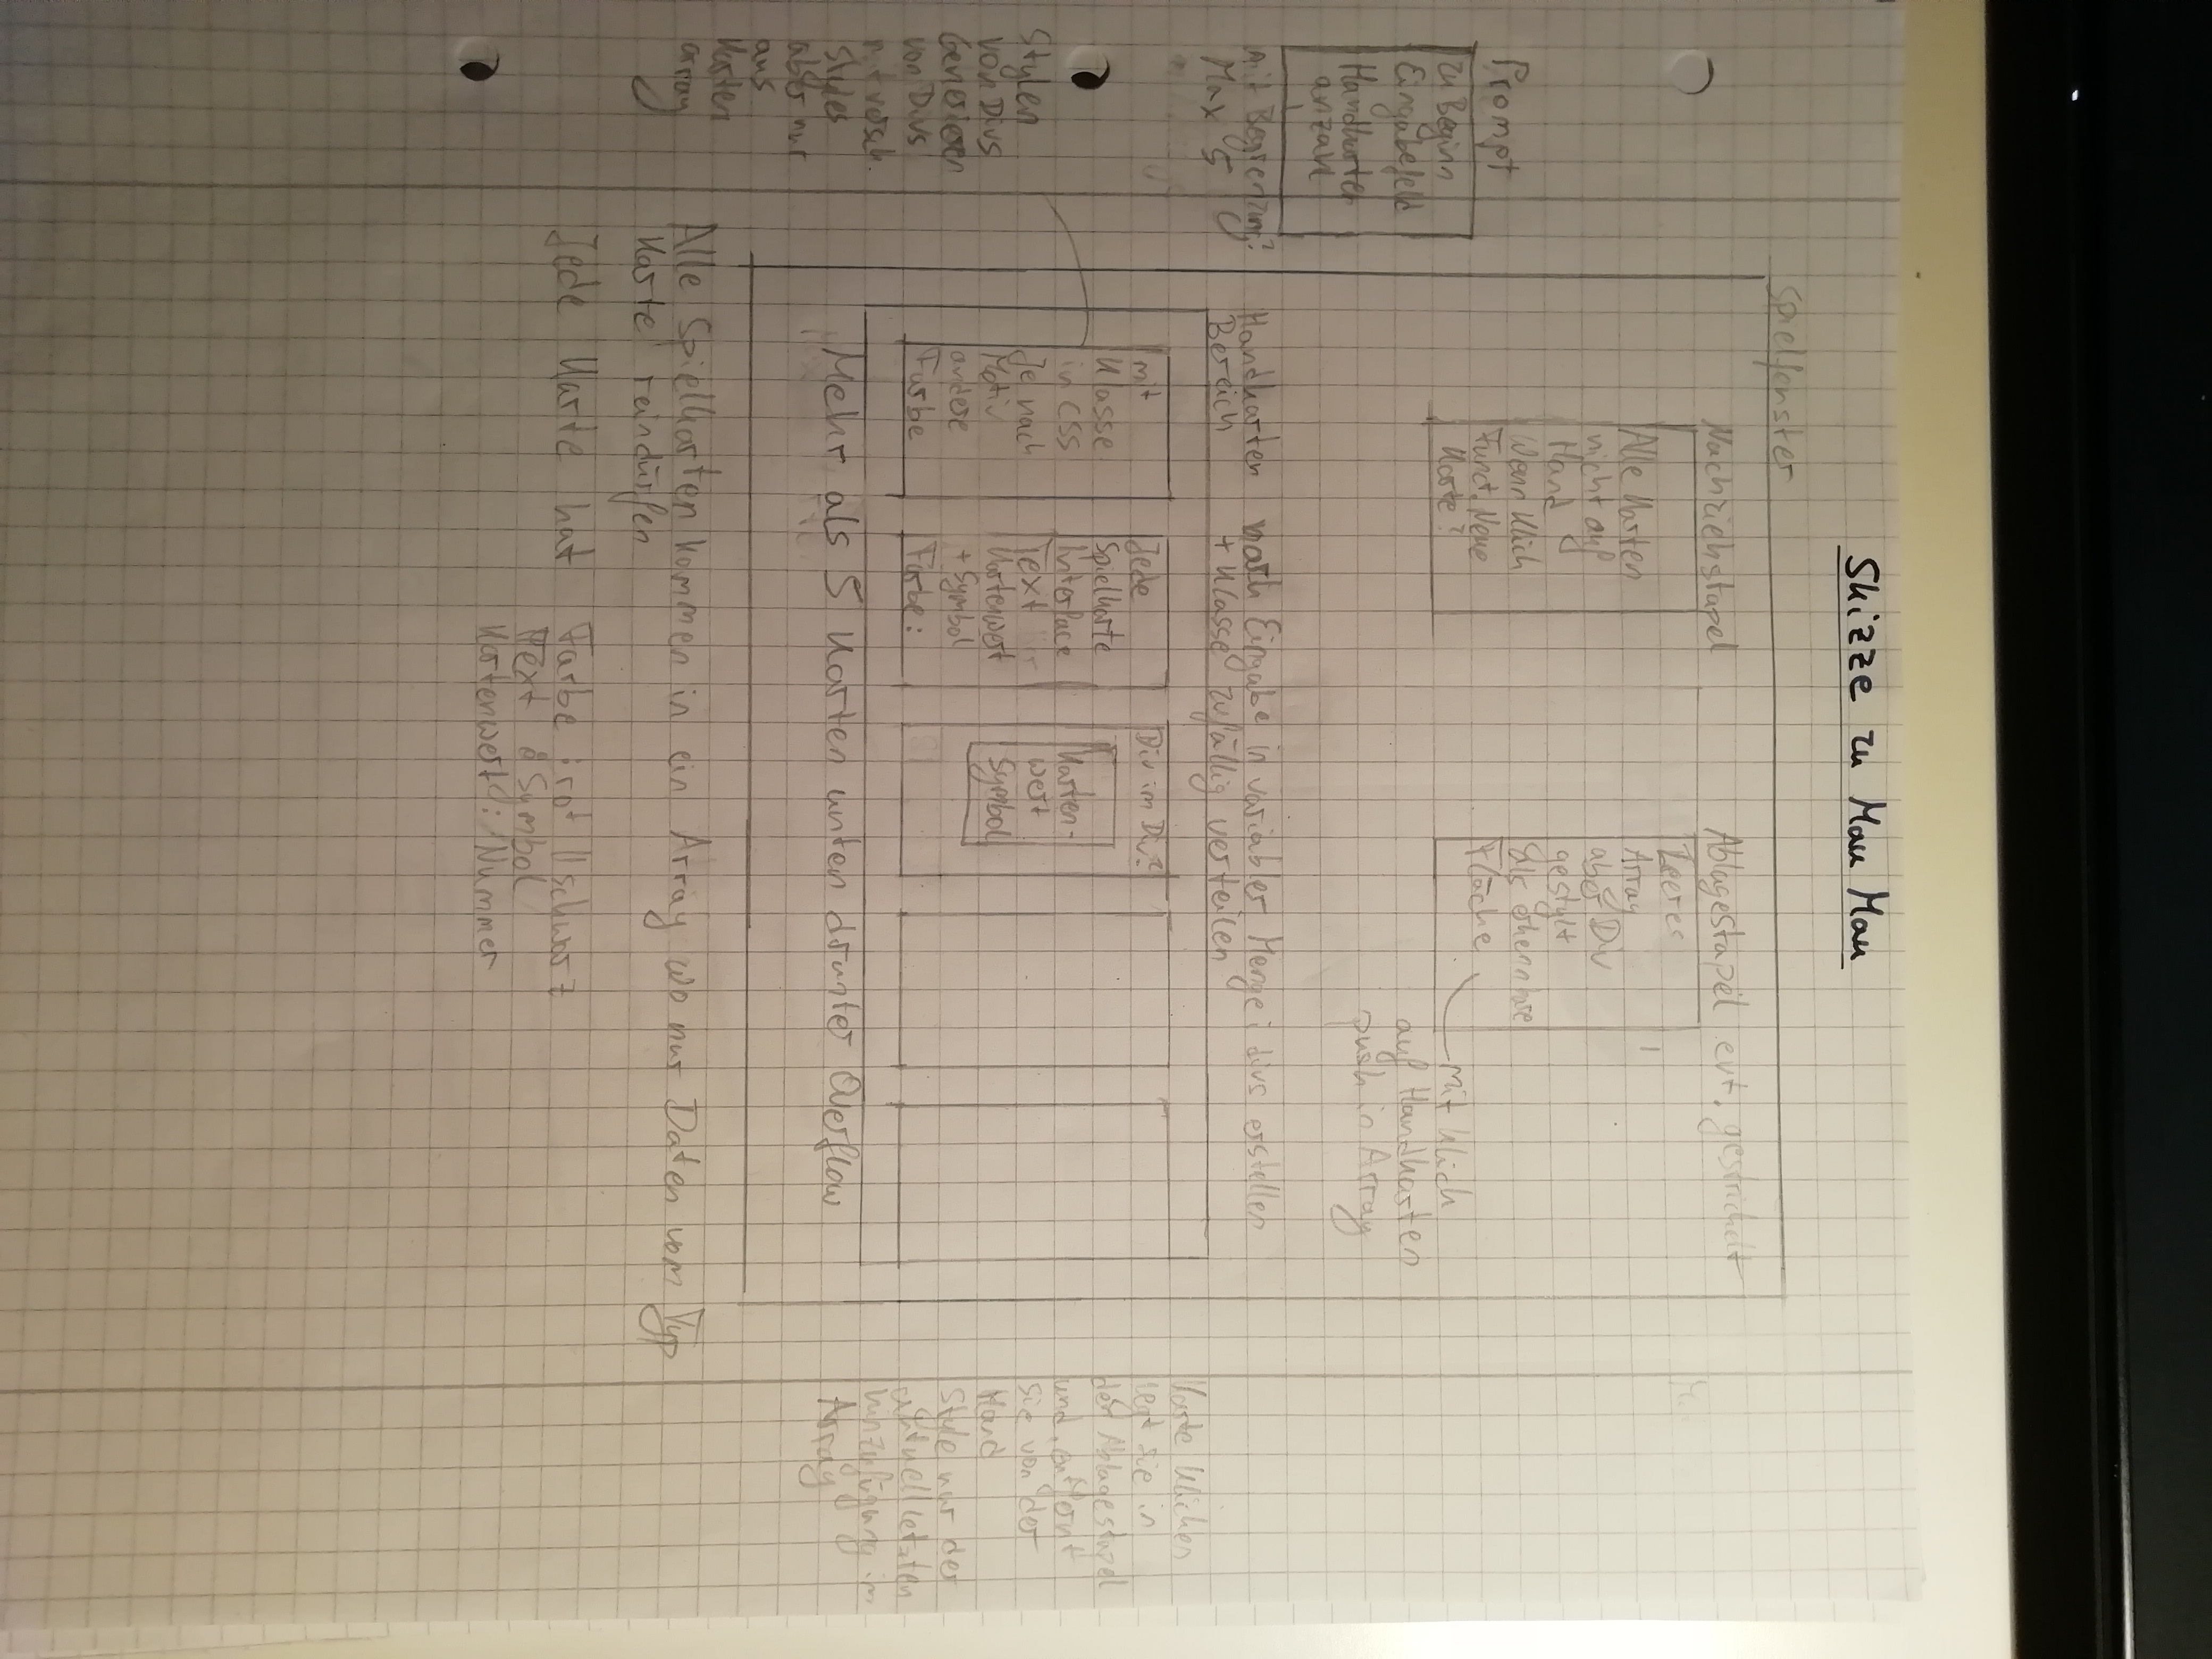 Skizze zu Mau Mau
Spielfenster
Nachziehstapel
Alle Karten
nicht auf
Hand
Wenn Klick
Funct. Neue
Karte?
Ablagestapel evt. gestrichelt
Leeres
Array
aber Div
gestylt
als erkennbare
Fläche
mit Klick
auf Handkarten
push in Array
Prompt
Zu Beginn
Eingabefeld
Handkarten
anzahl
mit Begrenzung?
Max 5
Handkarten nach Eingabe in variabler Menge: divs erstellen
Bereich + Klasse zufällig verteilen
mit
Klasse
in CSS
Je nach
Motiv
andere
Farbe
Jede
Spielkarte
Interface
Text
Kartenwert
+ Symbol
Farbe:
Div im Div?
Karten-
wert
Symbol
Mehr als 5 Karten unten drunter Overflow
Stylen
von Divs
Generieren
von Divs
mit versch.
Styles
aber nur
aus
Karten
array
Karte klicken
legt sie in
den Ablagestapel
und entfernt
sie von der
Hand
Style nur der
aktuell letzten
hinzufügung im
Array
Alle Spielkarten kommen in ein Array wo nur Daten vom Typ
Karte reindürfen
Jede Karte hat Farbe: rot || schwarz
Text : Symbol
Kartenwert: Nummer